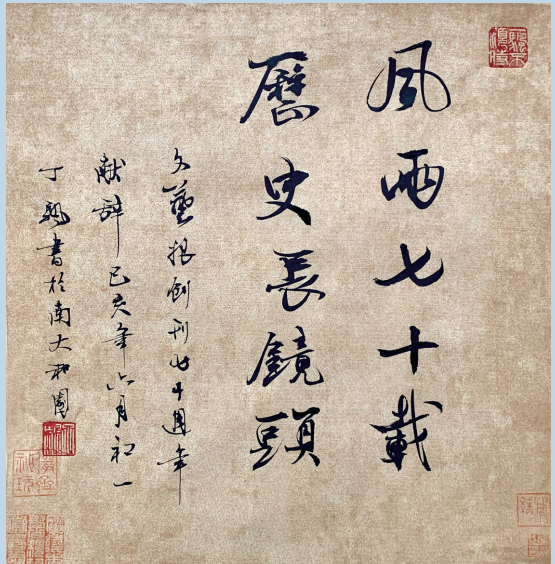 風雨七十載
歷史長鏡頭
文藝报創刊七十週年
献辞己亥年六月初一
丁帆書於南大和園